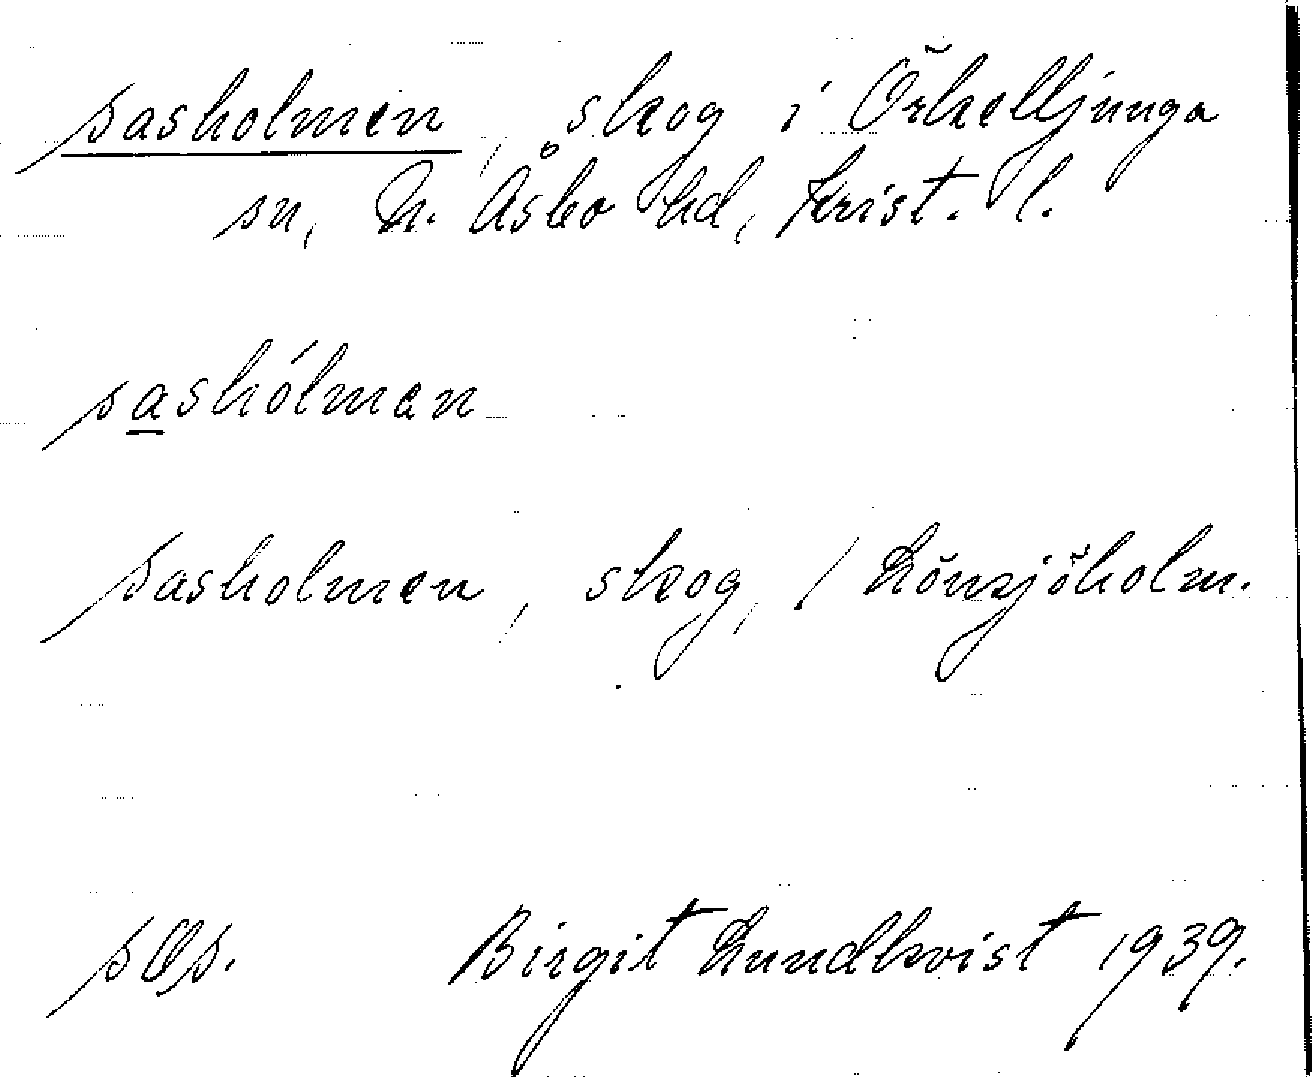 sasholmen, skog i Örkelljunga
sn, N. Åsbo hd, Krist. l.
sashólman
sasholmen, skog, / Lönsjöholm.
Birgit Lundkvist 1939.